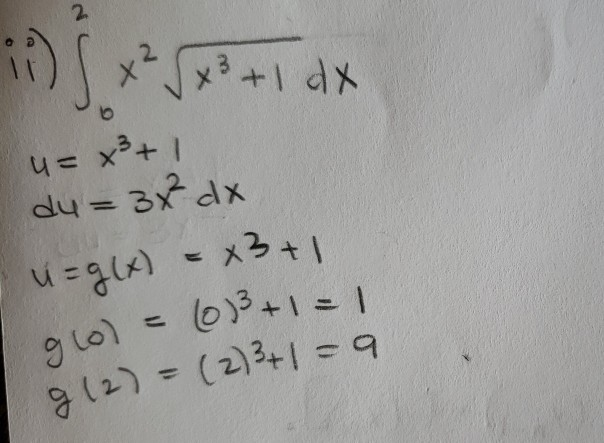 ii) ∫₀² x² √(x³+1) dx
u = x³ + 1
du = 3x² dx
u = g(x) = x³ + 1
g(0) = (0)³ + 1 = 1
g(2) = (2)³ + 1 = 9